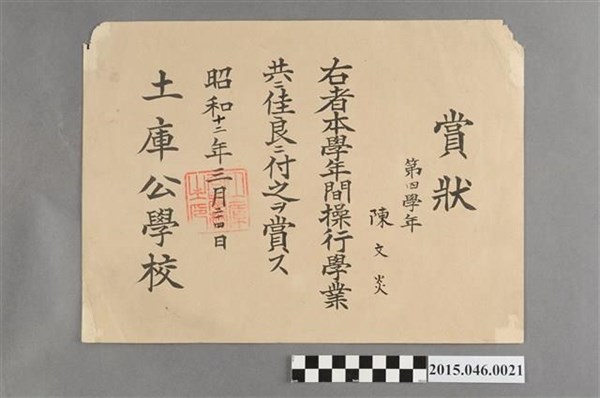 賞狀
第四學年
陳文炎
右者本學年間操行學業
共ニ佳良ニ付之ヲ賞ス
昭和十二年三月二十四日
土庫公學校
2015.046.0021